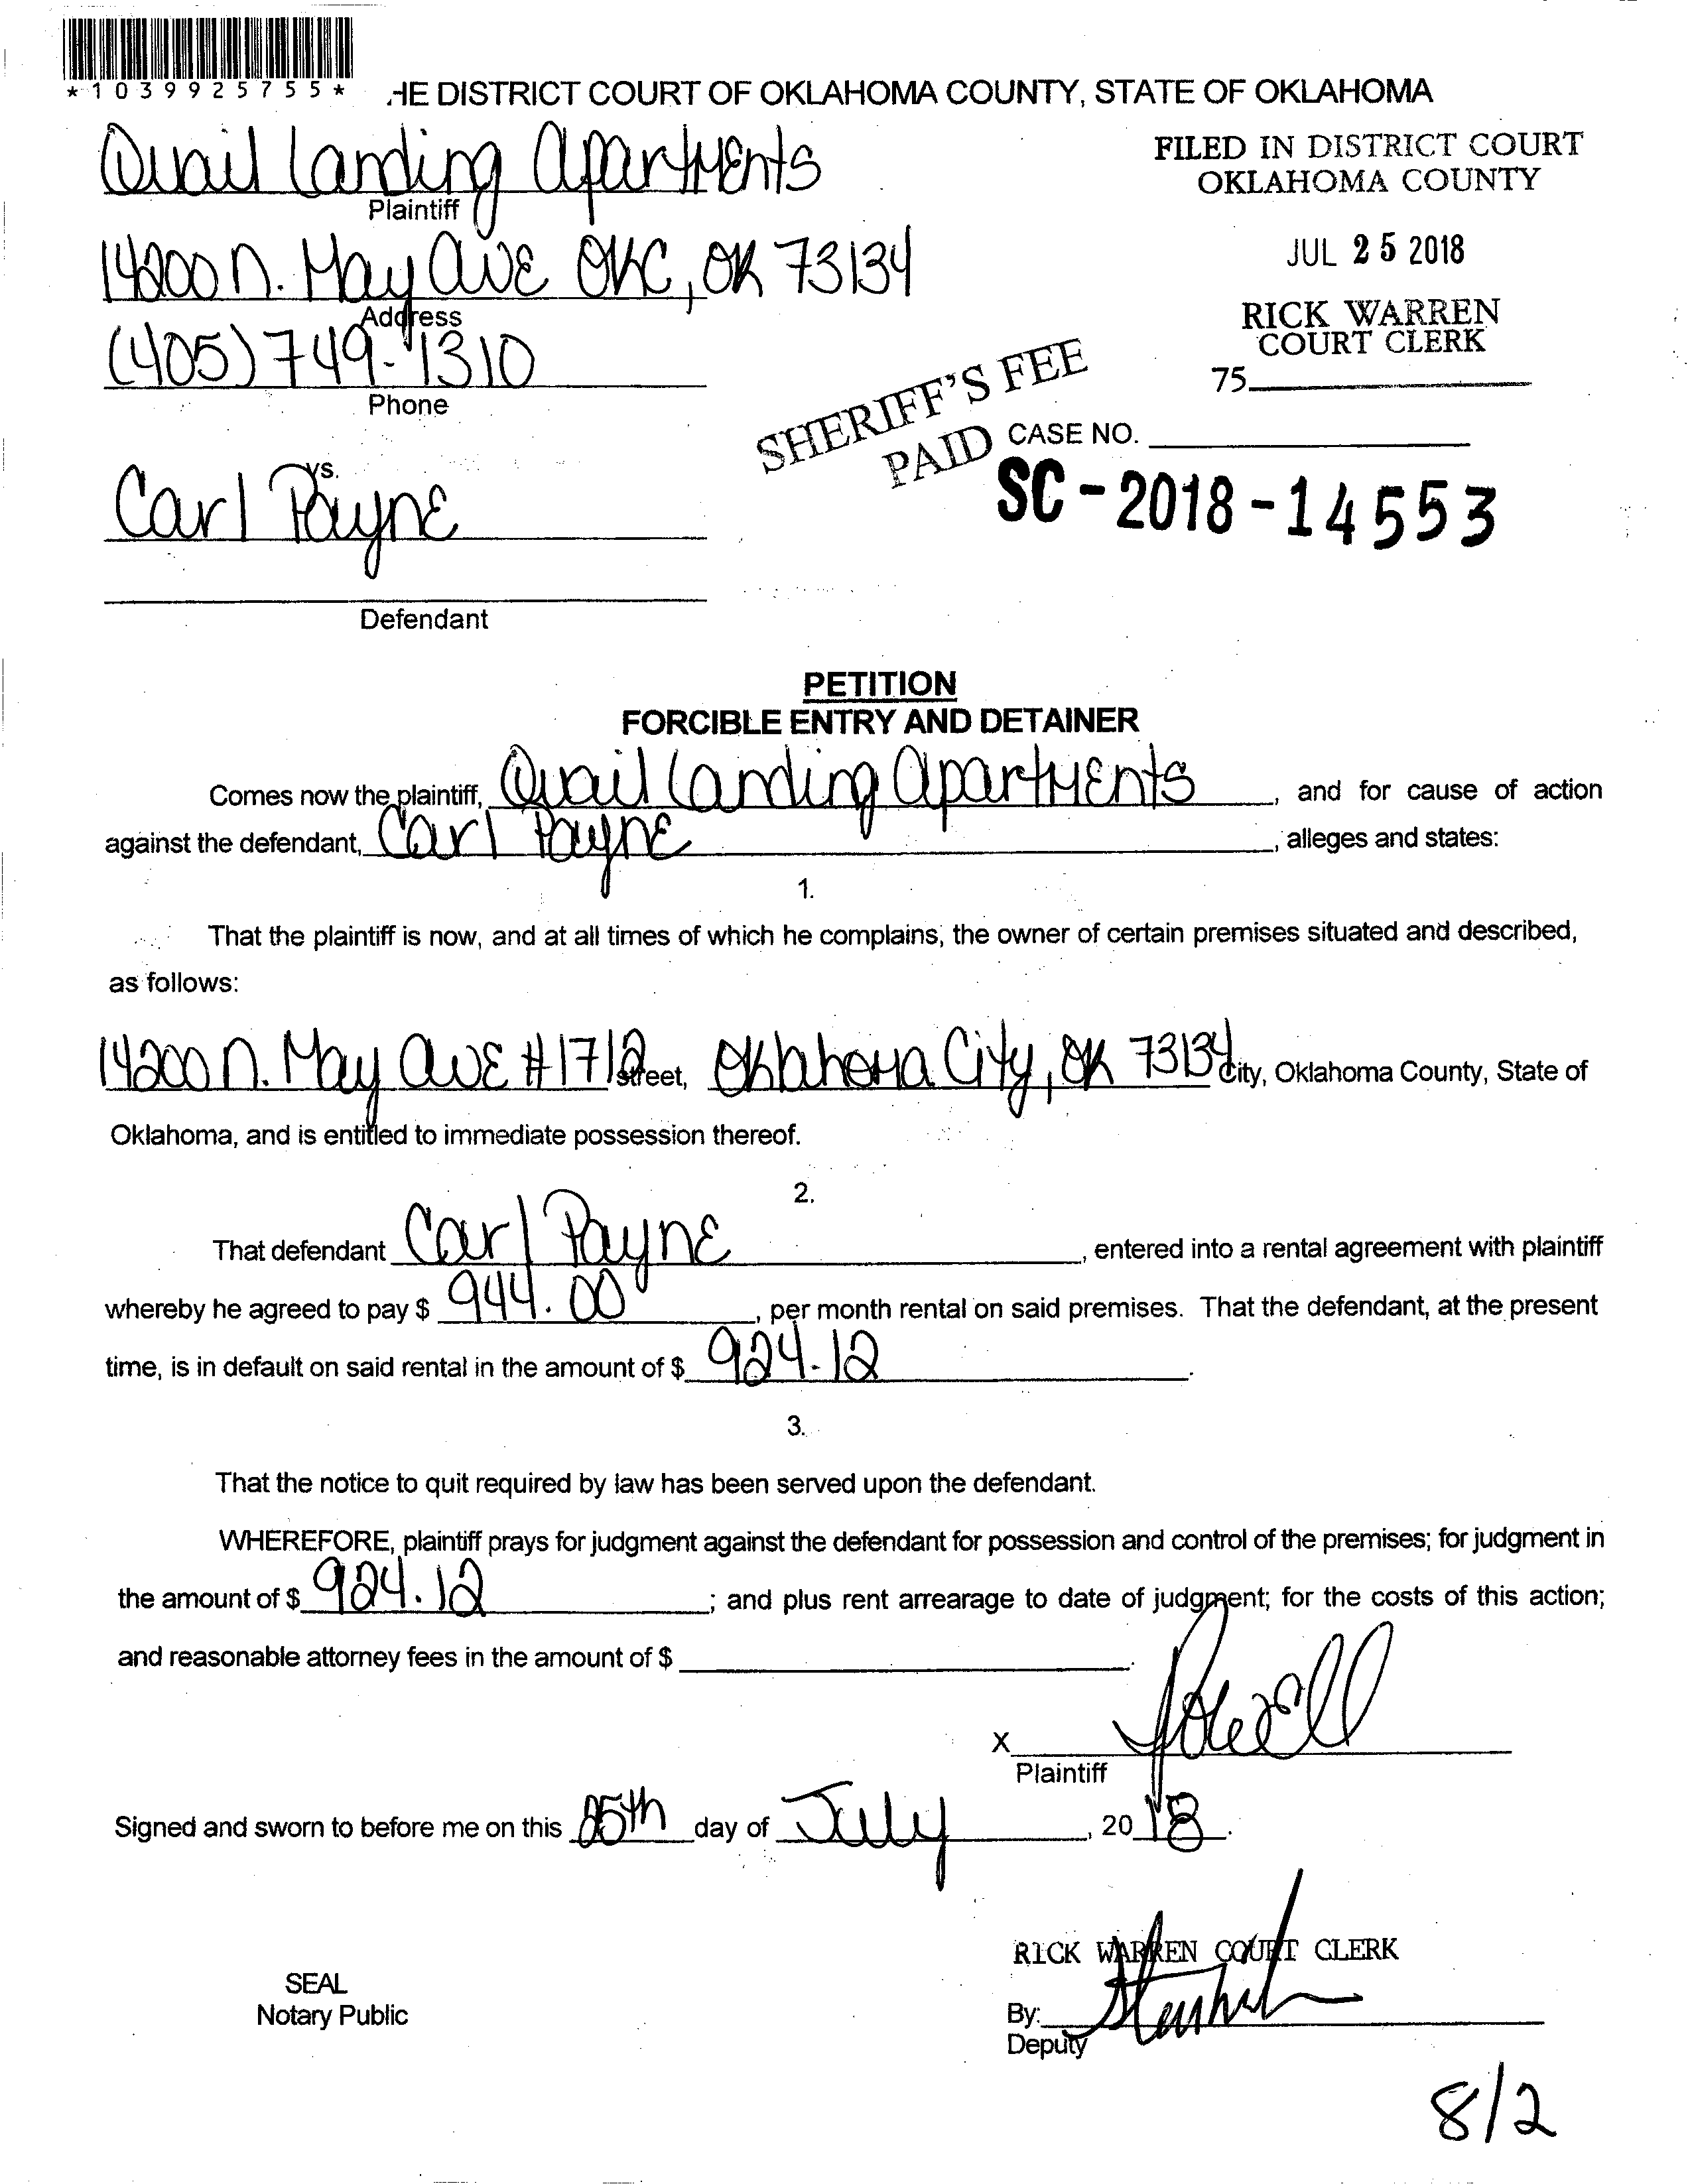 *1039925755*
HE DISTRICT COURT OF OKLAHOMA COUNTY, STATE OF OKLAHOMA
Quail Landing Apartments
Plaintiff
FILED IN DISTRICT COURT
OKLAHOMA COUNTY
14200 N. May Ave OKC, OK 73134
Address
JUL 25 2018
(405) 749-1310
Phone
RICK WARREN
COURT CLERK
75
SHERIFF'S FEE
PAID
CASE NO.
SC-2018-14553
vs.
Carl Payne
Defendant
PETITION
FORCIBLE ENTRY AND DETAINER
Comes now the plaintiff, Quail Landing Apartments, and for cause of action
against the defendant, Carl Payne, alleges and states:
1.
That the plaintiff is now, and at all times of which he complains, the owner of certain premises situated and described,
as follows:
14200 N. May Ave #1712 street, Oklahoma City, OK 73134 City, Oklahoma County, State of
Oklahoma, and is entitled to immediate possession thereof.
2.
That defendant Carl Payne, entered into a rental agreement with plaintiff
whereby he agreed to pay $ 944.00, per month rental on said premises. That the defendant, at the present
time, is in default on said rental in the amount of $ 924.12.
3.
That the notice to quit required by law has been served upon the defendant.
WHEREFORE, plaintiff prays for judgment against the defendant for possession and control of the premises; for judgment in
the amount of $ 924.12; and plus rent arrearage to date of judgment; for the costs of this action;
and reasonable attorney fees in the amount of $ .
X
Plaintiff
Signed and sworn to before me on this 25th day of July, 2018.
RICK WARREN COURT CLERK
SEAL
Notary Public
By:
Deputy
8/2